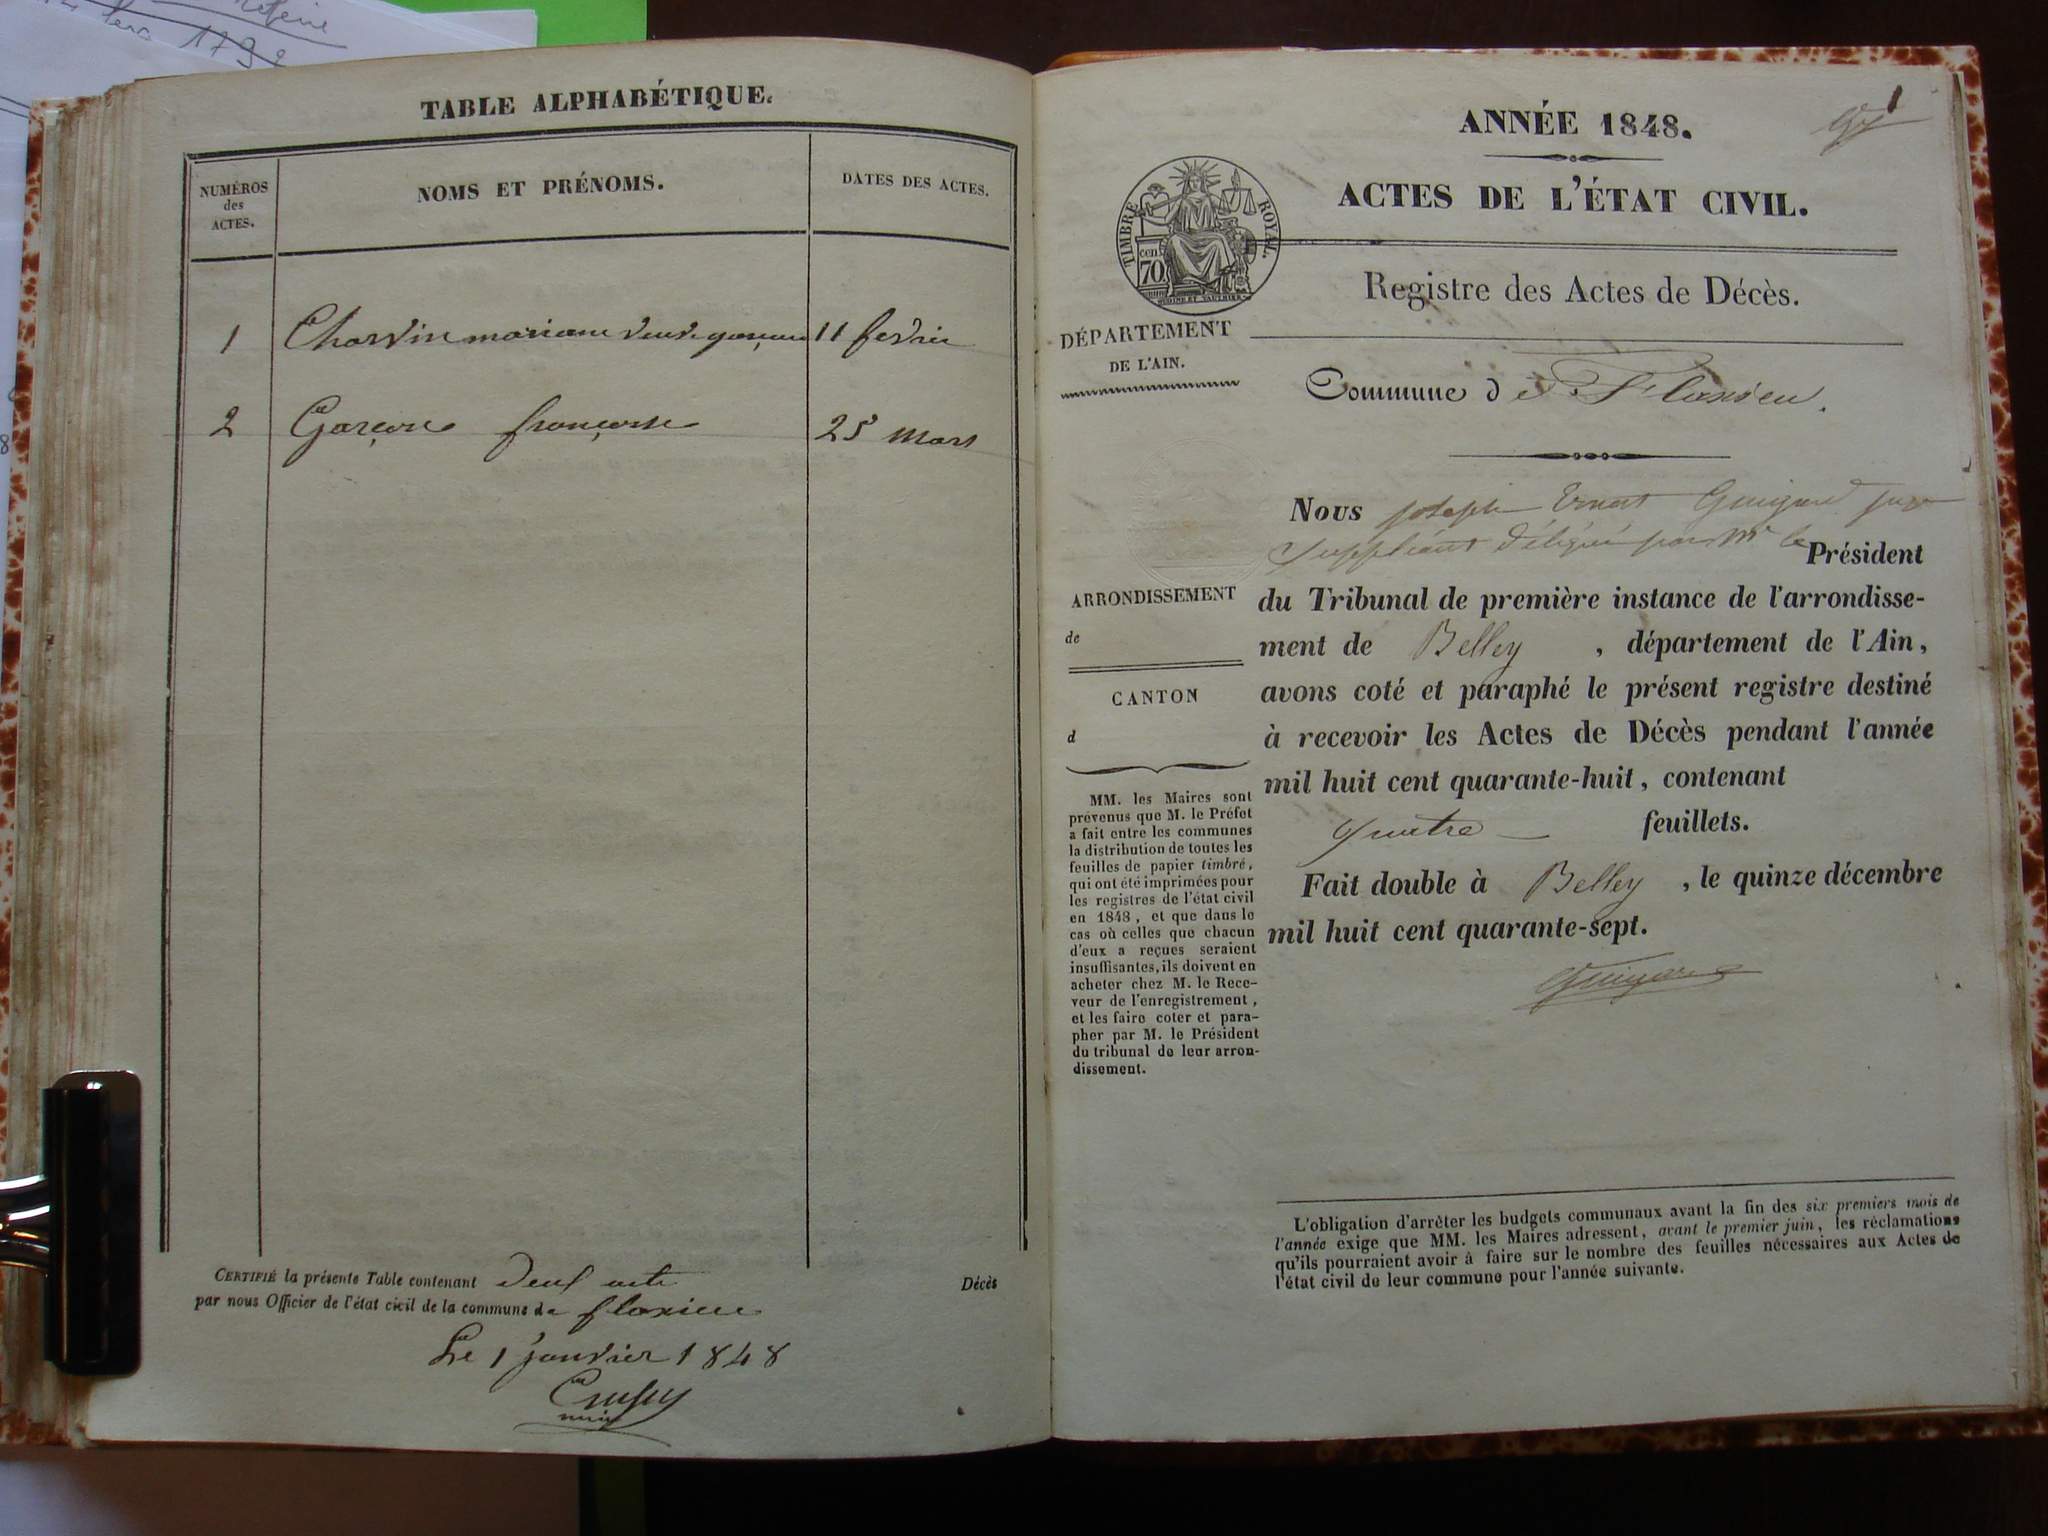 TABLE ALPHABÉTIQUE.
NUMÉROS des ACTES.
NOMS ET PRÉNOMS.
DATES DES ACTES.
1 Charvin mariane veuve 11 fevrier
2 Garçon françoise 25 mars
CERTIFIÉ la présente Table contenant deux acte Décès
par nous Officier de l'état civil de la commune de floxieu
Le 1 janvier 1848
Crussy
maire
1
ANNÉE 1848.
ACTES DE L'ÉTAT CIVIL.
TIMBRE ROYAL.
cen 70
Registre des Actes de Décès.
DÉPARTEMENT
DE L'AIN.
Commune de Floxieu.
ARRONDISSEMENT
de
CANTON
d
MM. les Maires sont
prévenus que M. le Préfet
a fait entre les communes
la distribution de toutes les
feuilles de papier timbré,
qui ont été imprimées pour
les registres de l'état civil
en 1848, et que dans le
cas où celles que chacun
d'eux a reçues seraient
insuffisantes, ils doivent en
acheter chez M. le Rece-
veur de l'enregistrement,
et les faire coter et para-
pher par M. le Président
du tribunal de leur arron-
dissement.
Nous joseph Ernest Guigard juge
suppléant délégué par Mr le Président
du Tribunal de première instance de l'arrondisse-
ment de Belley, département de l'Ain,
avons coté et paraphé le présent registre destiné
à recevoir les Actes de Décès pendant l'année
mil huit cent quarante-huit, contenant
quatre feuillets.
Fait double à Belley, le quinze décembre
mil huit cent quarante-sept.
Guigard
L'obligation d'arrêter les budgets communaux avant la fin des six premiers mois de
l'année exige que MM. les Maires adressent, avant le premier juin, les réclamations
qu'ils pourraient avoir à faire sur le nombre des feuilles nécessaires aux Actes de
l'état civil de leur commune pour l'année suivante.